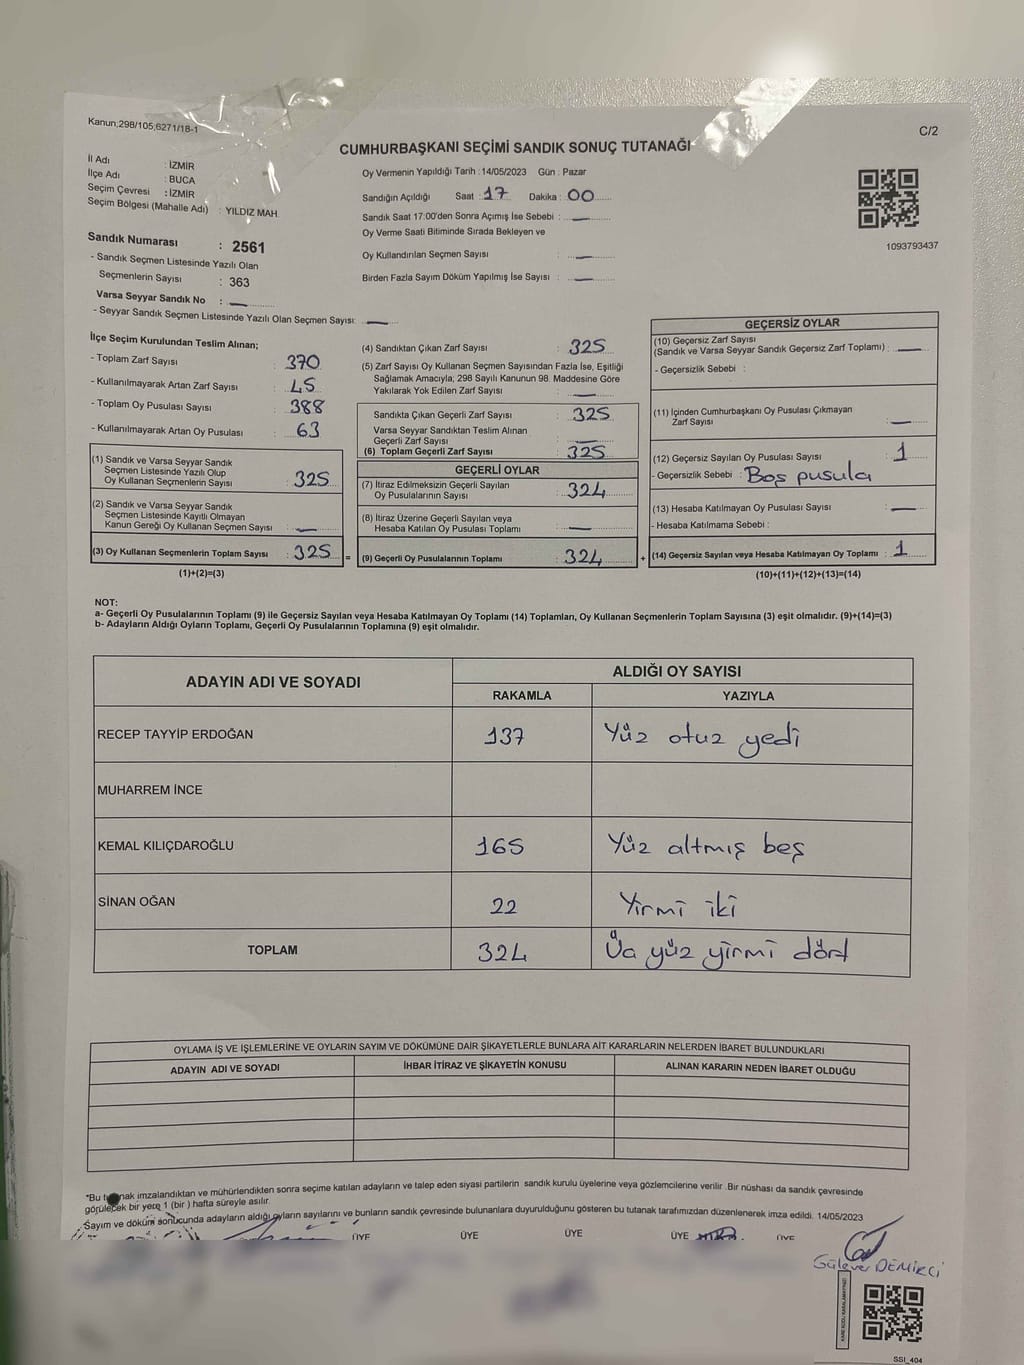 Kanun;298/105;6271/18-1
C/2
CUMHURBAŞKANI SEÇİMİ SANDIK SONUÇ TUTANAĞI
İl Adı : İZMİR
İlçe Adı : BUCA
Seçim Çevresi : İZMİR
Seçim Bölgesi (Mahalle Adı) : YILDIZ MAH.
Sandık Numarası : 2561
- Sandık Seçmen Listesinde Yazılı Olan
Seçmenlerin Sayısı : 363
Varsa Seyyar Sandık No : —
- Seyyar Sandık Seçmen Listesinde Yazılı Olan Seçmen Sayısı: —
Oy Vermenin Yapıldığı Tarih : 14/05/2023 Gün : Pazar
Sandığın Açıldığı Saat : 17 Dakika : 00
Sandık Saat 17:00'den Sonra Açımış İse Sebebi : —
Oy Verme Saati Bitiminde Sırada Bekleyen ve
Oy Kullandırılan Seçmen Sayısı : —
Birden Fazla Sayım Döküm Yapılmış İse Sayısı : —
1093793437
İlçe Seçim Kurulundan Teslim Alınan;
- Toplam Zarf Sayısı : 370
- Kullanılmayarak Artan Zarf Sayısı : 45
- Toplam Oy Pusulası Sayısı : 388
- Kullanılmayarak Artan Oy Pusulası : 63
(1) Sandık ve Varsa Seyyar Sandık
Seçmen Listesinde Yazılı Olup
Oy Kullanan Seçmenlerin Sayısı : 325
(2) Sandık ve Varsa Seyyar Sandık
Seçmen Listesinde Kayıtlı Olmayan
Kanun Gereği Oy Kullanan Seçmen Sayısı : —
(3) Oy Kullanan Seçmenlerin Toplam Sayısı : 325 =
(1)+(2)=(3)
(4) Sandıktan Çıkan Zarf Sayısı : 325
(5) Zarf Sayısı Oy Kullanan Seçmen Sayısından Fazla İse, Eşitliği
Sağlamak Amacıyla; 298 Sayılı Kanunun 98. Maddesine Göre
Yakılarak Yok Edilen Zarf Sayısı : —
Sandıkta Çıkan Geçerli Zarf Sayısı : 325
Varsa Seyyar Sandıktan Teslim Alınan
Geçerli Zarf Sayısı : —
(6) Toplam Geçerli Zarf Sayısı : 325
GEÇERLİ OYLAR
(7) İtiraz Edilmeksizin Geçerli Sayılan
Oy Pusulalarının Sayısı : 324
(8) İtiraz Üzerine Geçerli Sayılan veya
Hesaba Katılan Oy Pusulası Toplamı : —
(9) Geçerli Oy Pusulalarının Toplamı : 324 +
GEÇERSİZ OYLAR
(10) Geçersiz Zarf Sayısı
(Sandık ve Varsa Seyyar Sandık Geçersiz Zarf Toplamı) : —
- Geçersizlik Sebebi :
(11) İçinden Cumhurbaşkanı Oy Pusulası Çıkmayan
Zarf Sayısı : —
(12) Geçersiz Sayılan Oy Pusulası Sayısı : 1
- Geçersizlik Sebebi : Boş pusula
(13) Hesaba Katılmayan Oy Pusulası Sayısı : —
- Hesaba Katılmama Sebebi :
(14) Geçersiz Sayılan veya Hesaba Katılmayan Oy Toplamı : 1
(10)+(11)+(12)+(13)=(14)
NOT:
a- Geçerli Oy Pusulalarının Toplamı (9) ile Geçersiz Sayılan veya Hesaba Katılmayan Oy Toplamı (14) Toplamları, Oy Kullanan Seçmenlerin Toplam Sayısına (3) eşit olmalıdır. (9)+(14)=(3)
b- Adayların Aldığı Oyların Toplamı, Geçerli Oy Pusulalarının Toplamına (9) eşit olmalıdır.
ADAYIN ADI VE SOYADI ALDIĞI OY SAYISI
RAKAMLA YAZIYLA
RECEP TAYYİP ERDOĞAN 137 Yüz otuz yedi
MUHARREM İNCE
KEMAL KILIÇDAROĞLU 165 Yüz altmış beş
SİNAN OĞAN 22 Yirmi iki
TOPLAM 324 Üç yüz yirmi dört
OYLAMA İŞ VE İŞLEMLERİNE VE OYLARIN SAYIM VE DÖKÜMÜNE DAİR ŞİKAYETLERLE BUNLARA AİT KARARLARIN NELERDEN İBARET BULUNDUKLARI
ADAYIN ADI VE SOYADI İHBAR İTİRAZ VE ŞİKAYETİN KONUSU ALINAN KARARIN NEDEN İBARET OLDUĞU
*Bu tutanak imzalandıktan ve mühürlendikten sonra seçime katılan adayların ve talep eden siyasi partilerin sandık kurulu üyelerine veya gözlemcilerine verilir. Bir nüshası da sandık çevresinde
görülecek bir yere 1 (bir) hafta süreyle asılır.
Sayım ve döküm sonucunda adayların aldığı oyların sayılarını ve bunların sandık çevresinde bulunanlara duyurulduğunu gösteren bu tutanak tarafımızdan düzenlenerek imza edildi. 14/05/2023
ÜYE ÜYE ÜYE ÜYE ÜYE
DEMİRCİ
SSI_404